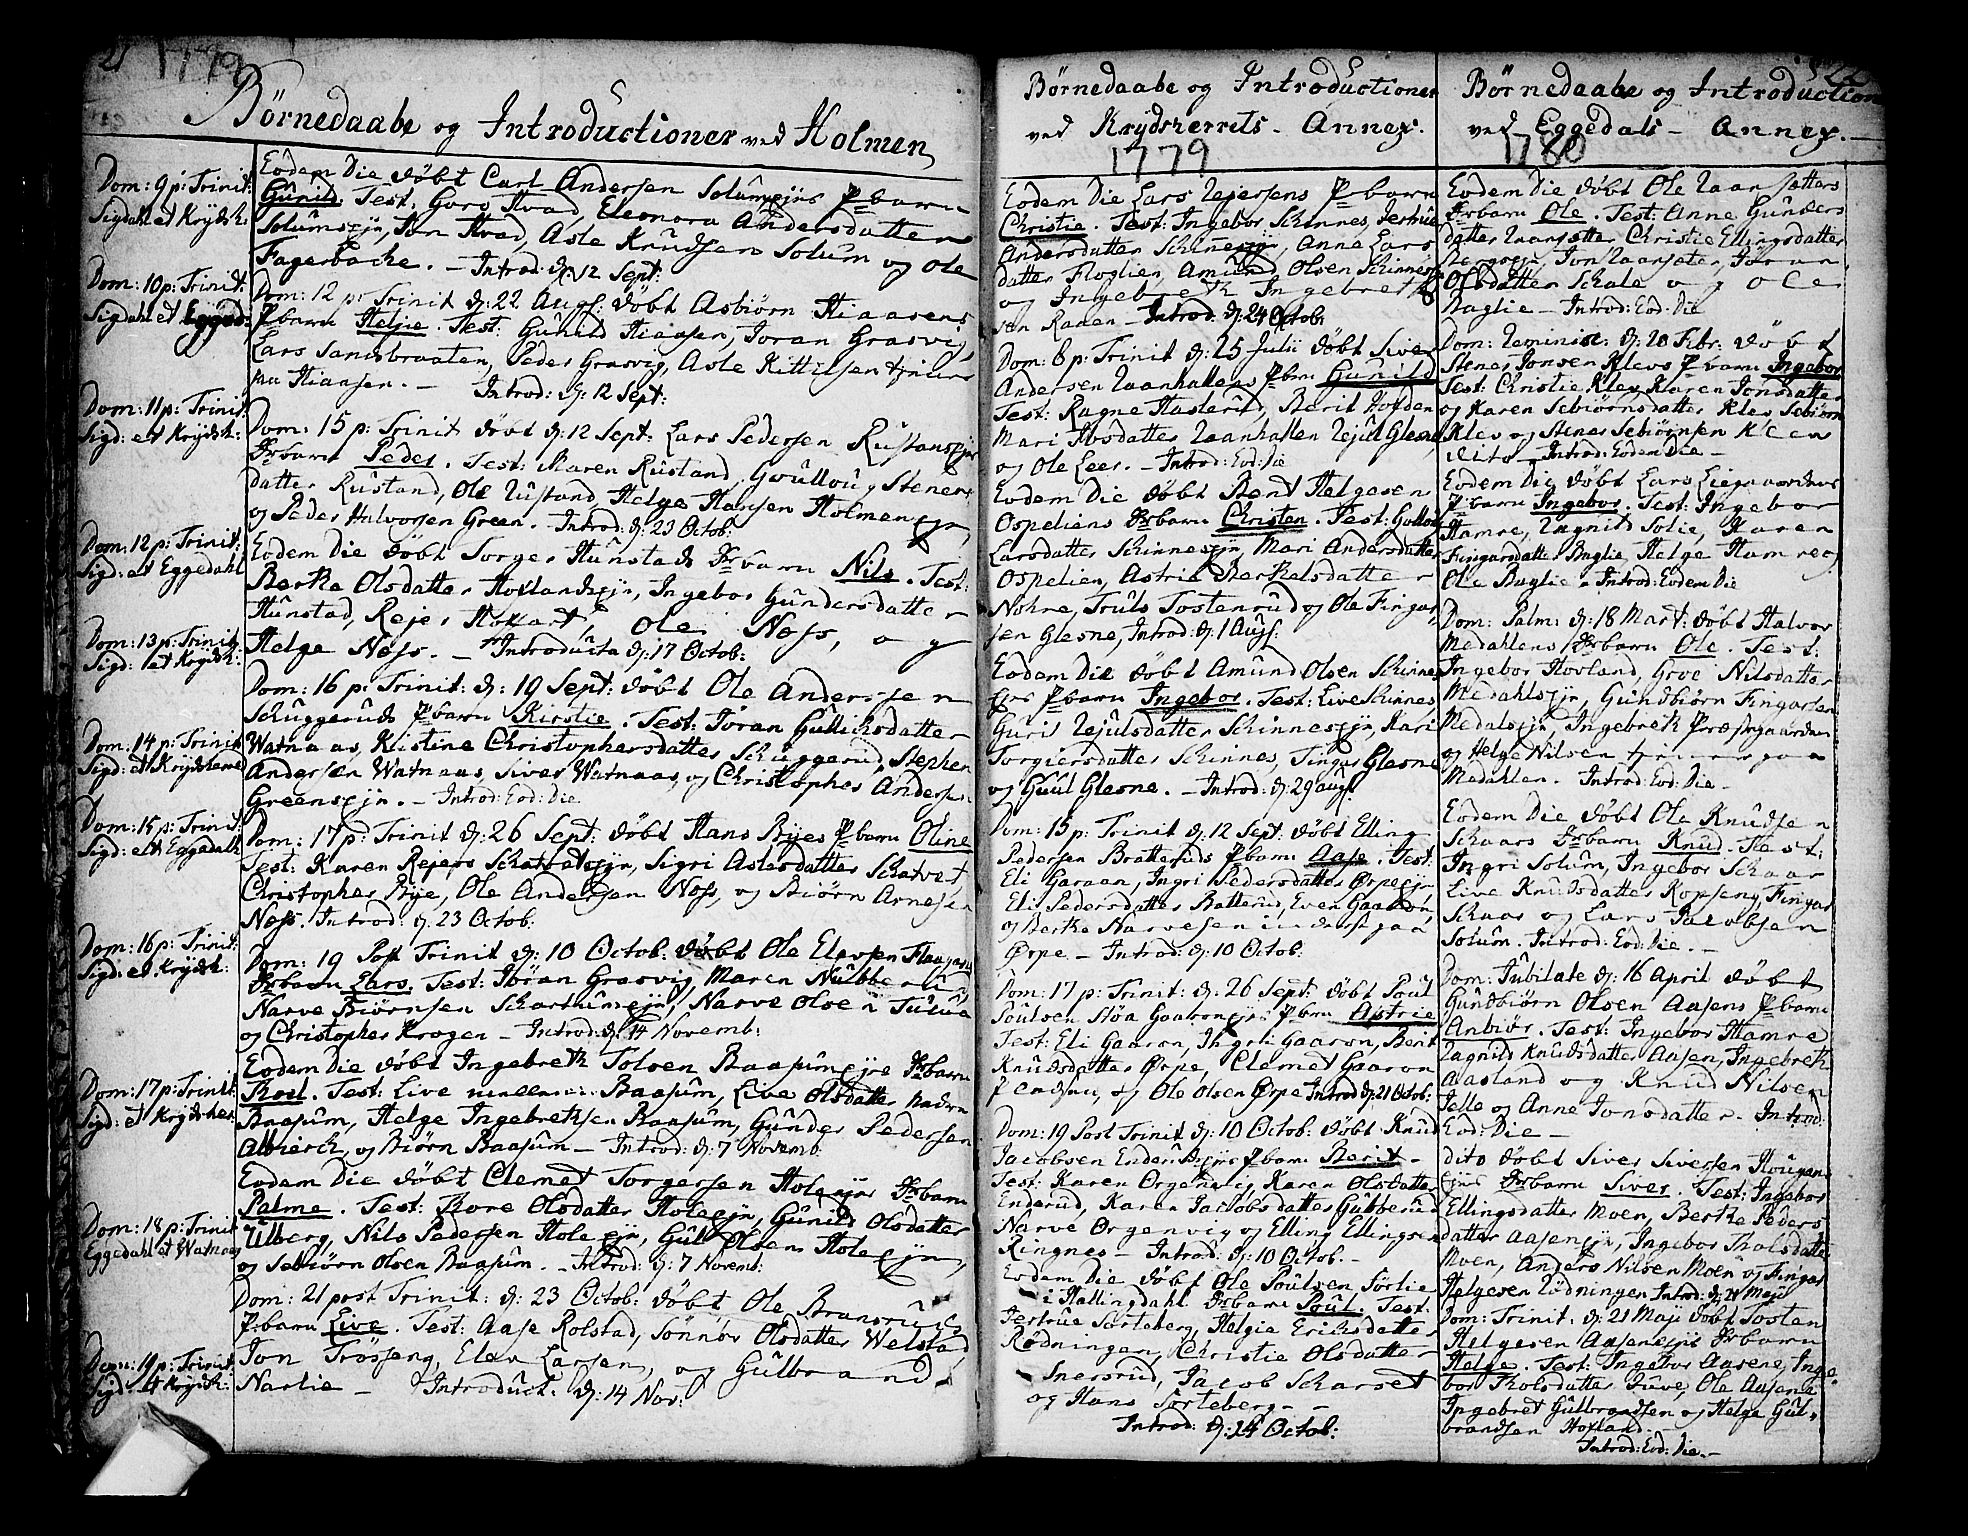 21 1779
Börnedaabe og Introductioner ved Holmen
Dom: 9 p: Trinit:
Sigdahl et Krydsh:
Dom: 10 p: Trinit:
Sigdahl et Eggod:
Dom: 11 p: Trinit:
Sigd: et Krydsh:
Dom: 12 p: Trinit:
Sigd: et Eggedahl
Dom: 13 p: Trinit
Sigd: et Krydsh:
Dom: 14 p: Trinit
Sigd: et Krydsherred
Dom: 15 p: Trinit:
Sigd: et Eggedahl
Dom: 16 p: Trinit:
Sigd: et Krydsh:
Dom: 17 p: Trinit:
Sigd: et Krydsher
Dom: 18 p: Trinit
Eggedahl et Watnaas
Dom: 19 p: Trinit
Sigd: Krydsh:
Eodem Die döbt Carl Andersen Solumsejes barn
Gunild. Test: Guro Hvad, Eleonora Andersdatter
Solumsejn, Jon Hvad, Asle Knudsen Solum og Ole
Fagerbacke. – Introd: d: 12 Sept:
Dom: 12 p: Trinit d: 22 Aug: döbt Asbiörn Hiaasens
barn Helje. Test: Gunild Hiaasen, Joran Grasvig,
Lars Sandsbraaten, Peder Grasvig, Asle Kittilsen
Hiaasen. – Introd: d: 12 Sept:
Dom: 15 p: Trinit döbt d: 12 Sept: Lars Pedersen Rustansejes
barn Peder. Test: Maren Rustand, Steners
datter Rustand, Ole Rustand, Helge Hansen Holmen
og Peder Halvorsen Green. – Introd: d: 23 Octob:
Eodem Die döbt Torger Hunstads barn Nils. Test:
Berthe Olsdatter Hovlandsejn, Ingebor Gundersdatter
Hunstad, Rejer, Ole Noss, og
Helge Noss. – Introducta d: 17 Octob:
Dom: 16 p: Trinit: d: 19 Sept: döbt Ole Anderssen
Skuggeruds barn Kirstie. Test: Joran Gullichsdatter
Watnaas, Kistine Christophersdatter Schuggerud, Stephen
Andersen Watnaas, Siver Watnaas, og Christopher Andersen
Greensejn. – Introd: Eod: Die
Dom: 17 p: Trinit d: 26 Sept: döbt Hans Byes barn Oline
Test: Karen Rejers Schatvetsejn, Sigri Aslesdatter Schatvet,
Christopher Bye, Ole Andersen Noss, og Biörn Arnesen
Noss. Introd: d: 23 Octob:
Dom: 19 Post Trinit d: 10 Octob: döbt Ole Elevsen Haugans
barn Lars. Test: Jöran Grasvig, Maren Nubberud
Narve Biörnsen, Narve Olsen Juvue
og Christopher Krogen – Introd: d: 14 Novemb:
Eodem Die döbt Ingebreth Tolvsen Baasumejes barn
Thoel. Test: Live Baasum, Live Olsdatter
Baasum, Helge Ingebrethsen Baasum, Gunder Pedersen
Albierch, og Biörn Baasum – Introd: d: 7 Novemb:
Eodem Die döbt Clemet Torgersen Holesejes barn
Palme. Test: Bore Olsdatter Holesejn, Gunild Olsdatter
Ulberg, Nils Pedersen Holesejn, Gul Olsen Holesejn,
og Sebiörn Olsen Baasum. – Introd: d: 7 Novemb:
Dom: 21 post Trinit: d: 23 Octob: döbt Ole Bransruds
barn Live. Test: Aase Rolstad, Sönnöv Olsdatter Welstad,
Jon Trosseng, Elev Larsen, og Gulbrand
Narlie – Introduct: d: 14 Nov:
Börnedaabe og Introductioner
ved Krydsherrets- Annex.
1779
Eodem Die Lars Rejersens barn
Christie. Test: Ingebor Schinnes, Jertrue
Andersdatter Schinnesejn, Anne Lars
datter Floglien, Amund Olsen Schinnes
og Ingebreth Ingebreth
sen Ranen – Introd: d: 24 Octob:
Dom: 8 p: Trinit d: 25 Julii döbt Siver
Andersen Raanhallens barn Gunild
Test: Ragne Hasterud, Berit Hovden
Mari Ibsdatter Raanhallen Rejul Glesne,
og Ole Leer. – Introd: Eod: Die
Eodem Die döbt Bent Helgesen
Ospeliens barn Christen. Test:
Larsdatter Schinnesejn, Mari Andersdatter
Ospelien, Astrid Berkelsdatter
Nohre, Truls Tostenrud og Ole Fingar
sen Glesne, Introd: d: 1 Aug:
Eodem Die döbt Amund Olsen Schinnes
ejes barn Ingebor. Test: Live Schinnes
Guri Rejulsdatter Schinnesejn, Kari
Torgiersdatter Schinnes, Fingar Glesne
og Guul Glesne. – Introd: d: 29 Aug:
Dom: 15 p: Trinit d: 12 Sept: döbt Elling
Pedersen Bratteruds barn Aase. Test:
Eli Garaan, Ingri Pedersdatter Ørpesejn
Eli Pedersdatter Batterud, Even Gaaron,
og Berthe Narvesen
Ørpe – Introd: d: 10 Octob:
Dom: 17 p: Trinit: d: 26 Sept: döbt Poul
Poulsen barn Astrie
Test: Eli Gaaron, Ingri Gaaron, Berit
Knudsdatter Ørpe, Clemet Gaaron
og Ole Olsen Ørpe Introd d: 21 Octob:
Dom: 19 Post Trinit: d: 10 Octob: döbt Knud
Jacobsen Enderudsejes barn Berit –
Test: Karen Orgenvig Karen Olsdatter
Enderud, Karen Jacobsdatter Gubberud
Narve Orgenvig og Elling Ellingsen
Ringnes – Introd: d: 10 Octob. –
Eodem Die döbt Ole Poulsen Sortie
i Hallingdahl barn Poul. Test:
Jertrue Sorteberg, Helgie Erichsdatter
Rodningen, Christie Olsdatter
Snersrud, Jacob Scharset
og Hans Sorteberg – –
Introd: d: 24 Octob:
22
Börnedaabe og Introduction
ved Eggedals – Annex. –
1780
Eodem Die döbt Ole Raansetters
barn Ole. Test: Anne Gunders
datter Raansetter, Christie Ellingsdatter
Jon Raanseter, Joran
Olsdatter Schale og Ole
Baglie – Introd: Eod: Die
Dom: Reminisc: d: 20 Febr: döbt
Stener Jonsen Klevs barn Ingebor
Test: Christie Klev, Karen Jonsdatter
og Karen Sebiörnsdatter Klev Sebiörn
Klev og Stener Sebiörnsen Klev
ditto – Introd: Eodem Die –
Eodem Die döbt Lars Liegaardens
barn Ingebor. Test: Ingebor
Hamre, Ragnild Solie, Karen
Fingarsdatter Baglie, Helge Hamre og
Ole Baglie – Introd: Eodem Die
Dom: Palm: d: 18 Mart: döbt Halvor
Medahlens barn Ole. Test:
Ingebor Hovland, Groe Nilsdatter
Medahlsejn, Gundbiörn Fingarsen
Medalsejn, Ingebreth Præstegaarden
og Helge Nilsen
Medahlen. Introd: Eod: Die –
Eodem Die döbt Ole Knudsen
Schaars barn Knud. Test:
Ingri Solum, Ingebor Schaar
Live Knudsdatter Kopseng, Fingar
Schaar og Lars Jacobsen
Solum. Introd: Eod: Die. –
Dom: Jubilate d: 16 April döbt
Gundbiörn Olsen Aasens barn
Anbiör. Test: Ingebor Hamre
Ragnild Knudsdatter Aasen, Ingebreth
Aasland og Knud Nilsen
Telle og Anne Jonsdatter. Introd:
Eod: Die –
Dito döbt Siver Siversen Hougans
ejes barn Siver. Test: Ingebor
Ellingsdatter Moen, Berthe Peders
datter Aasensejn, Ingebor Tholsdatter
Moen, Anders Nilsen Moen og Fingar
Helgesen Rodningen Introd: d: 21 Maji
Dom: Trinit: d: 21 Maji döbt Tosten
Helgesen Aasensejes barn
Helge. Test: Ingebor Aasene, Inge
bor Tholsdatter Juve, Ole Aasene
Ingebret Gulbrandsen og Helge Gul
brandsen Hovland.
Introd: Eod: Die. –